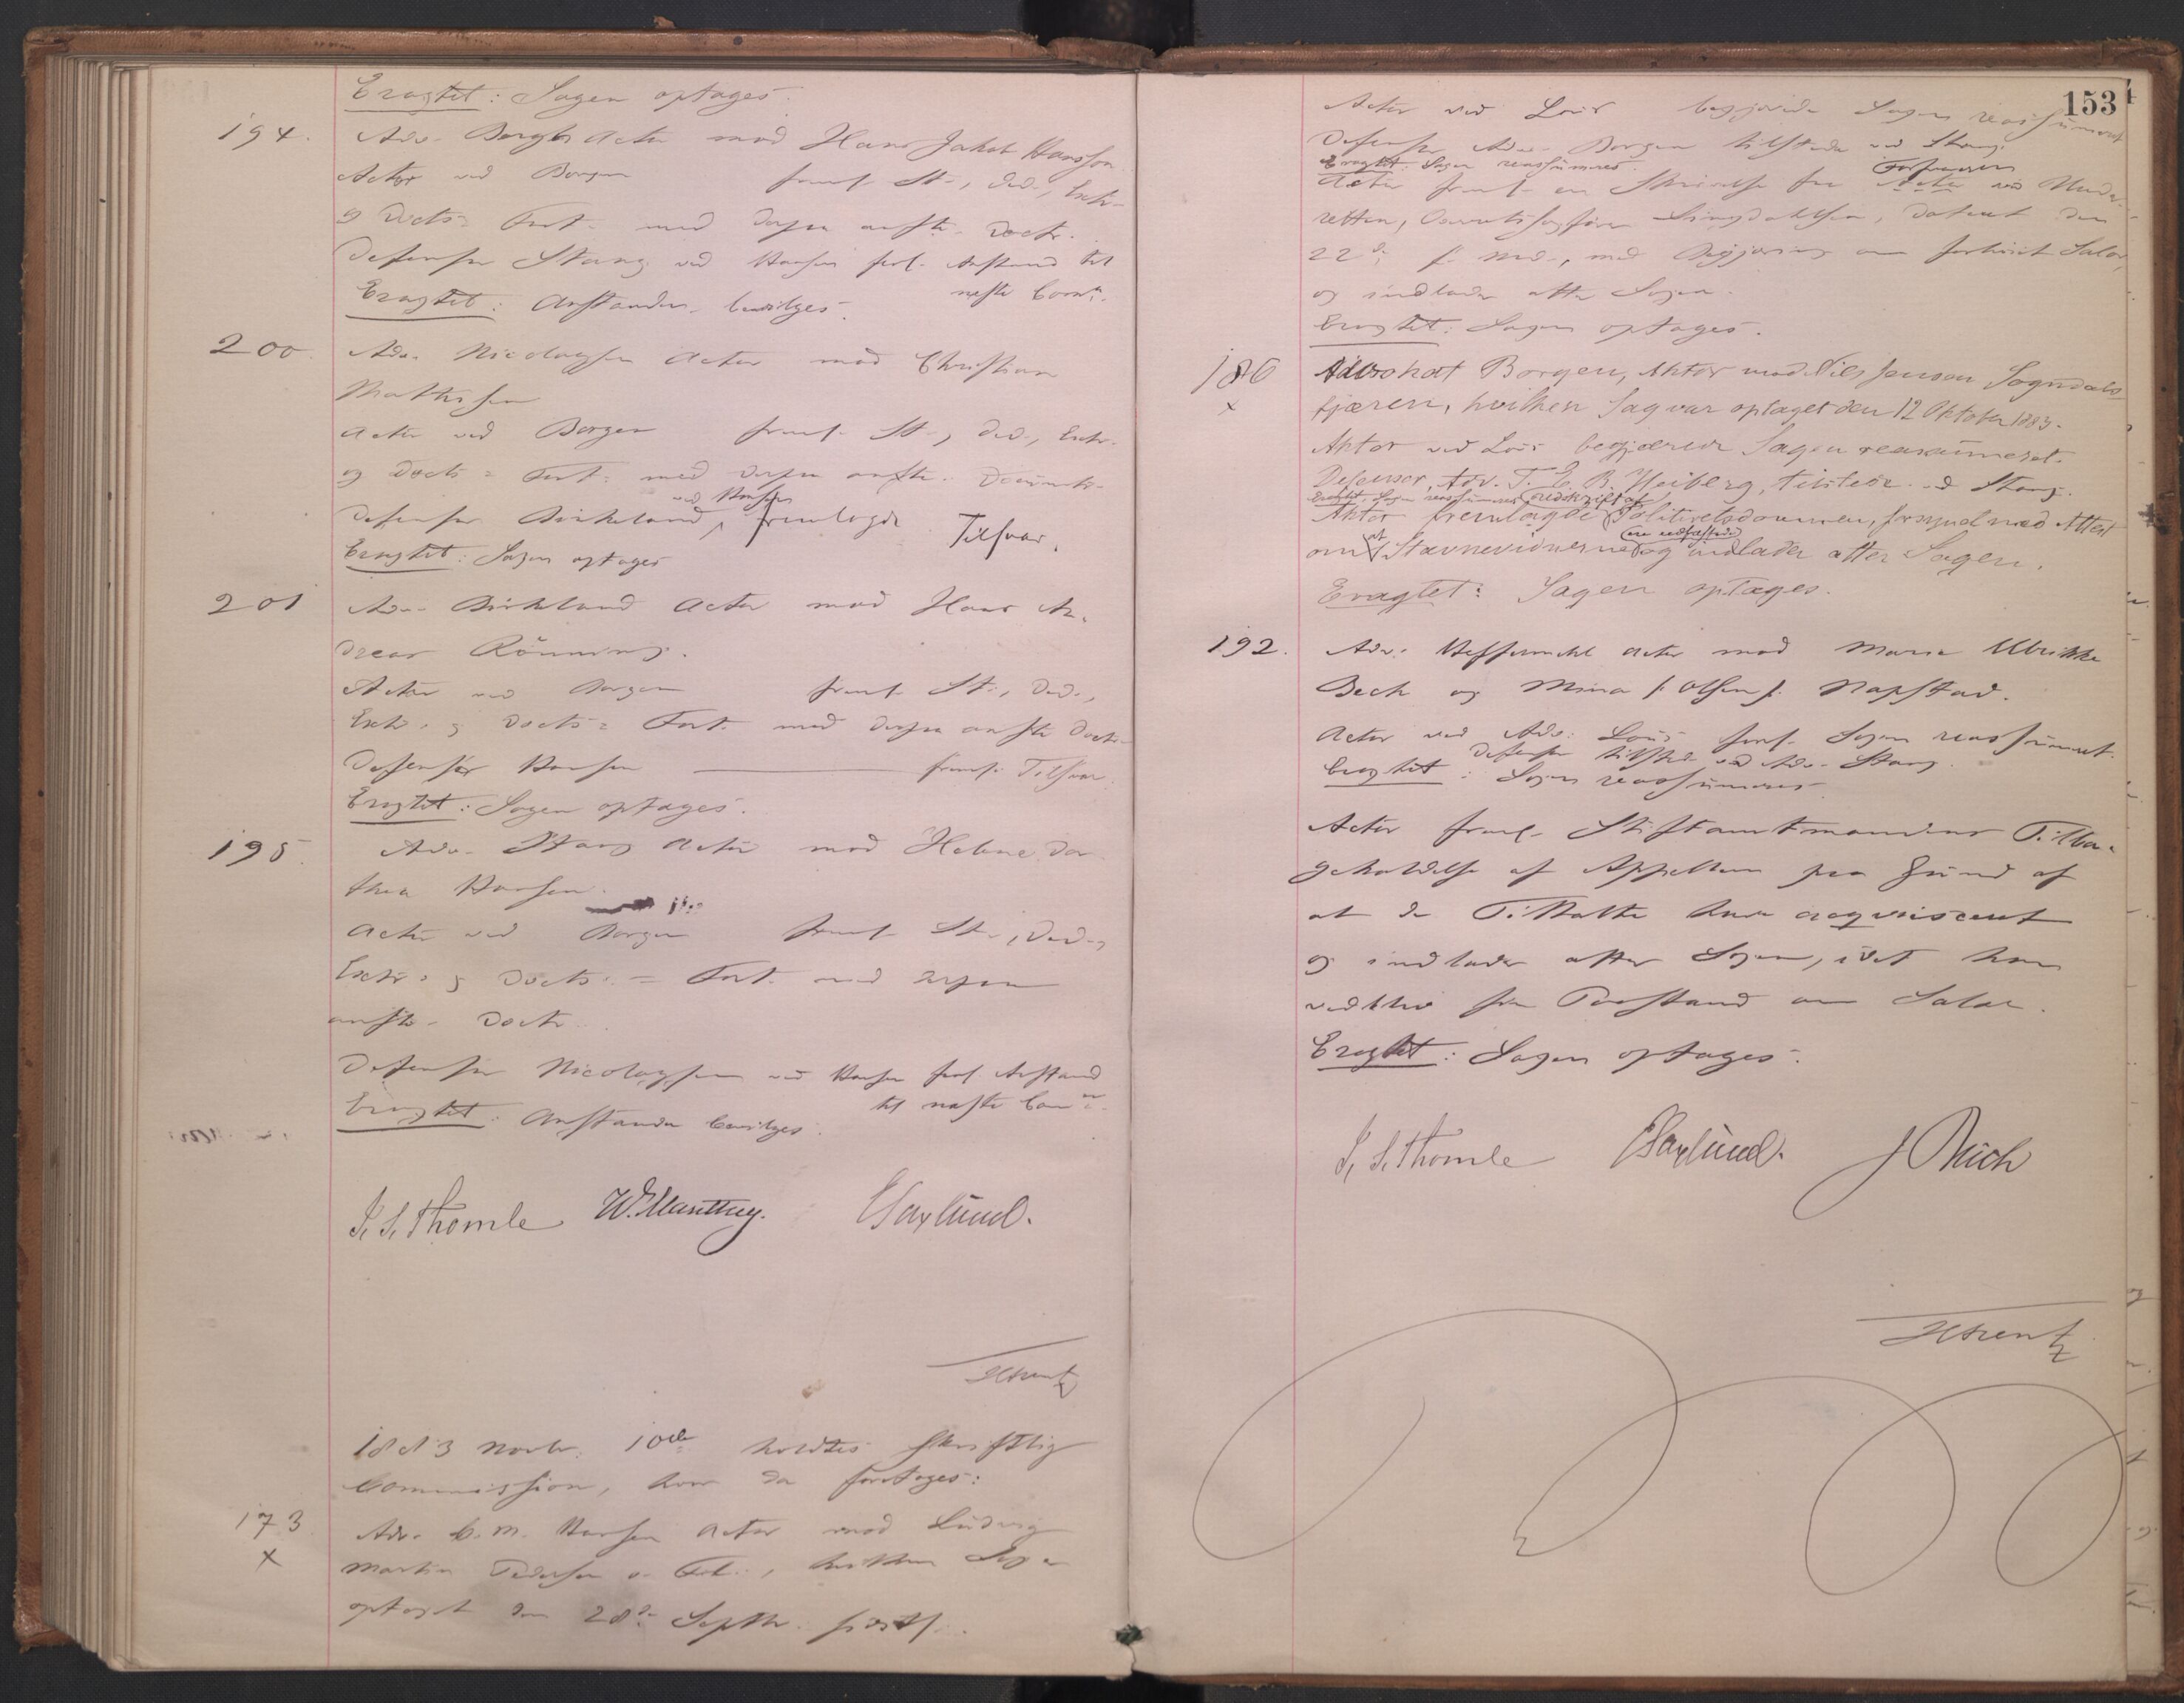 Eragtet: Sagen optages.
194. Adv. Bergh Actor mod Hans Jakob Hansson
Actor ved Borgen freml. St., Ded., Extr.
og Docts: Fort. med derpaa anfte. Doctr.
Defensor Stang ved Hansen forl. Anstand til
næste Comn.
Eragtet: Anstanden bevilges.
200. Adv. Nicolaysen Actor mod Christian
Mathisen
Actor ved Borgen freml. St., Ded., Extr.
og Docts: Fort: med derpaa anfte. Documtr.
ved Hansen
Defensor Birkeland, fremlagde Tilsvar.
Eragtet: Sagen optages
201 Adv. Birkeland Actor mod Hans An-
dreas Rönning.
Actor ved Borgen freml. St., Ded.,
Extr. og Docts: Fort. med derpaa anfte Doctr.
Defensor Hansen freml. Tilsvar.
Eragtet: Sagen optages.
195. Adv. Stang Actor mod Helene Dor
thea Hansen.
Actor ved Borgen freml. St., Ded.,
Extr. og Docts: Fort. med derpaa
anfte. Doctr.
Defensor Nicolaysen ved Hansen forl. Anstand
til næste Comn.
Eragtet: Anstanden bevilges.
I. S. Thomle E Saxlund.
1883 Novbr. 10de holdtes skriftlig
Commission, hvor da foretoges:
173 Adv. C. M. Hansen Actor mod Ludvig
x
Martin Pedersen o. Fl., hvilken Sag er
optaget den 28de Septbr. sidstl.
153
Actor ved Lous begjærede Sagen reassümeret
Defensor Adv. Borgen tilstede ved Stang.
Eragtet: Sagen reassümeres.
Forsvareren
Actor freml. en Skrivelse fra Actor ved Under-
retten, Overretssagfører Lingdahlsen, dateret den
22de f. Md., med Begjæring om forhöiet Salær,
og indlader atter Sagen.
Eragtet: Sagen optages.
186 Advokat Borgen, Aktor mod Nils Jensen Sogndals
x
fjæren, hvilken Sag var optaget den 12 Oktober 1883.
Aktor ved Lous begjærede Sagen reassümeret.
Defensor, Adv. T. E. B. Heiberg, tilstede ved Stang.
Eragtet: Sagen reassümeres. Udskrift af
Aktor fremlagde Politiretsdommen, forsynet med Attest
ere edfæstede
om at Stævnevidnerne og indlader atter Sagen.
Eragtet: Sagen optages.
192. Adv. Heffermehl Actor mod Maren Ulrikke
Bech og Mina f. Olsen f. Napstad.
Actor ved Adv. Lous forl. Sagen reassümeret.
Defensor tilstede ved Adv. Stang.
Eragtet: Sagen reassümeres.
Actor freml. Stiftamtmandens Tilba-
geholdelse af Appellen paa Grund af
at de Tiltalte have acqviesceret
og indlader atter Sagen, idet han
vedblev sin Paastand om Salær.
Eragtet: Sagen optages.
I. S. Thomle E Saxlund. J Büch